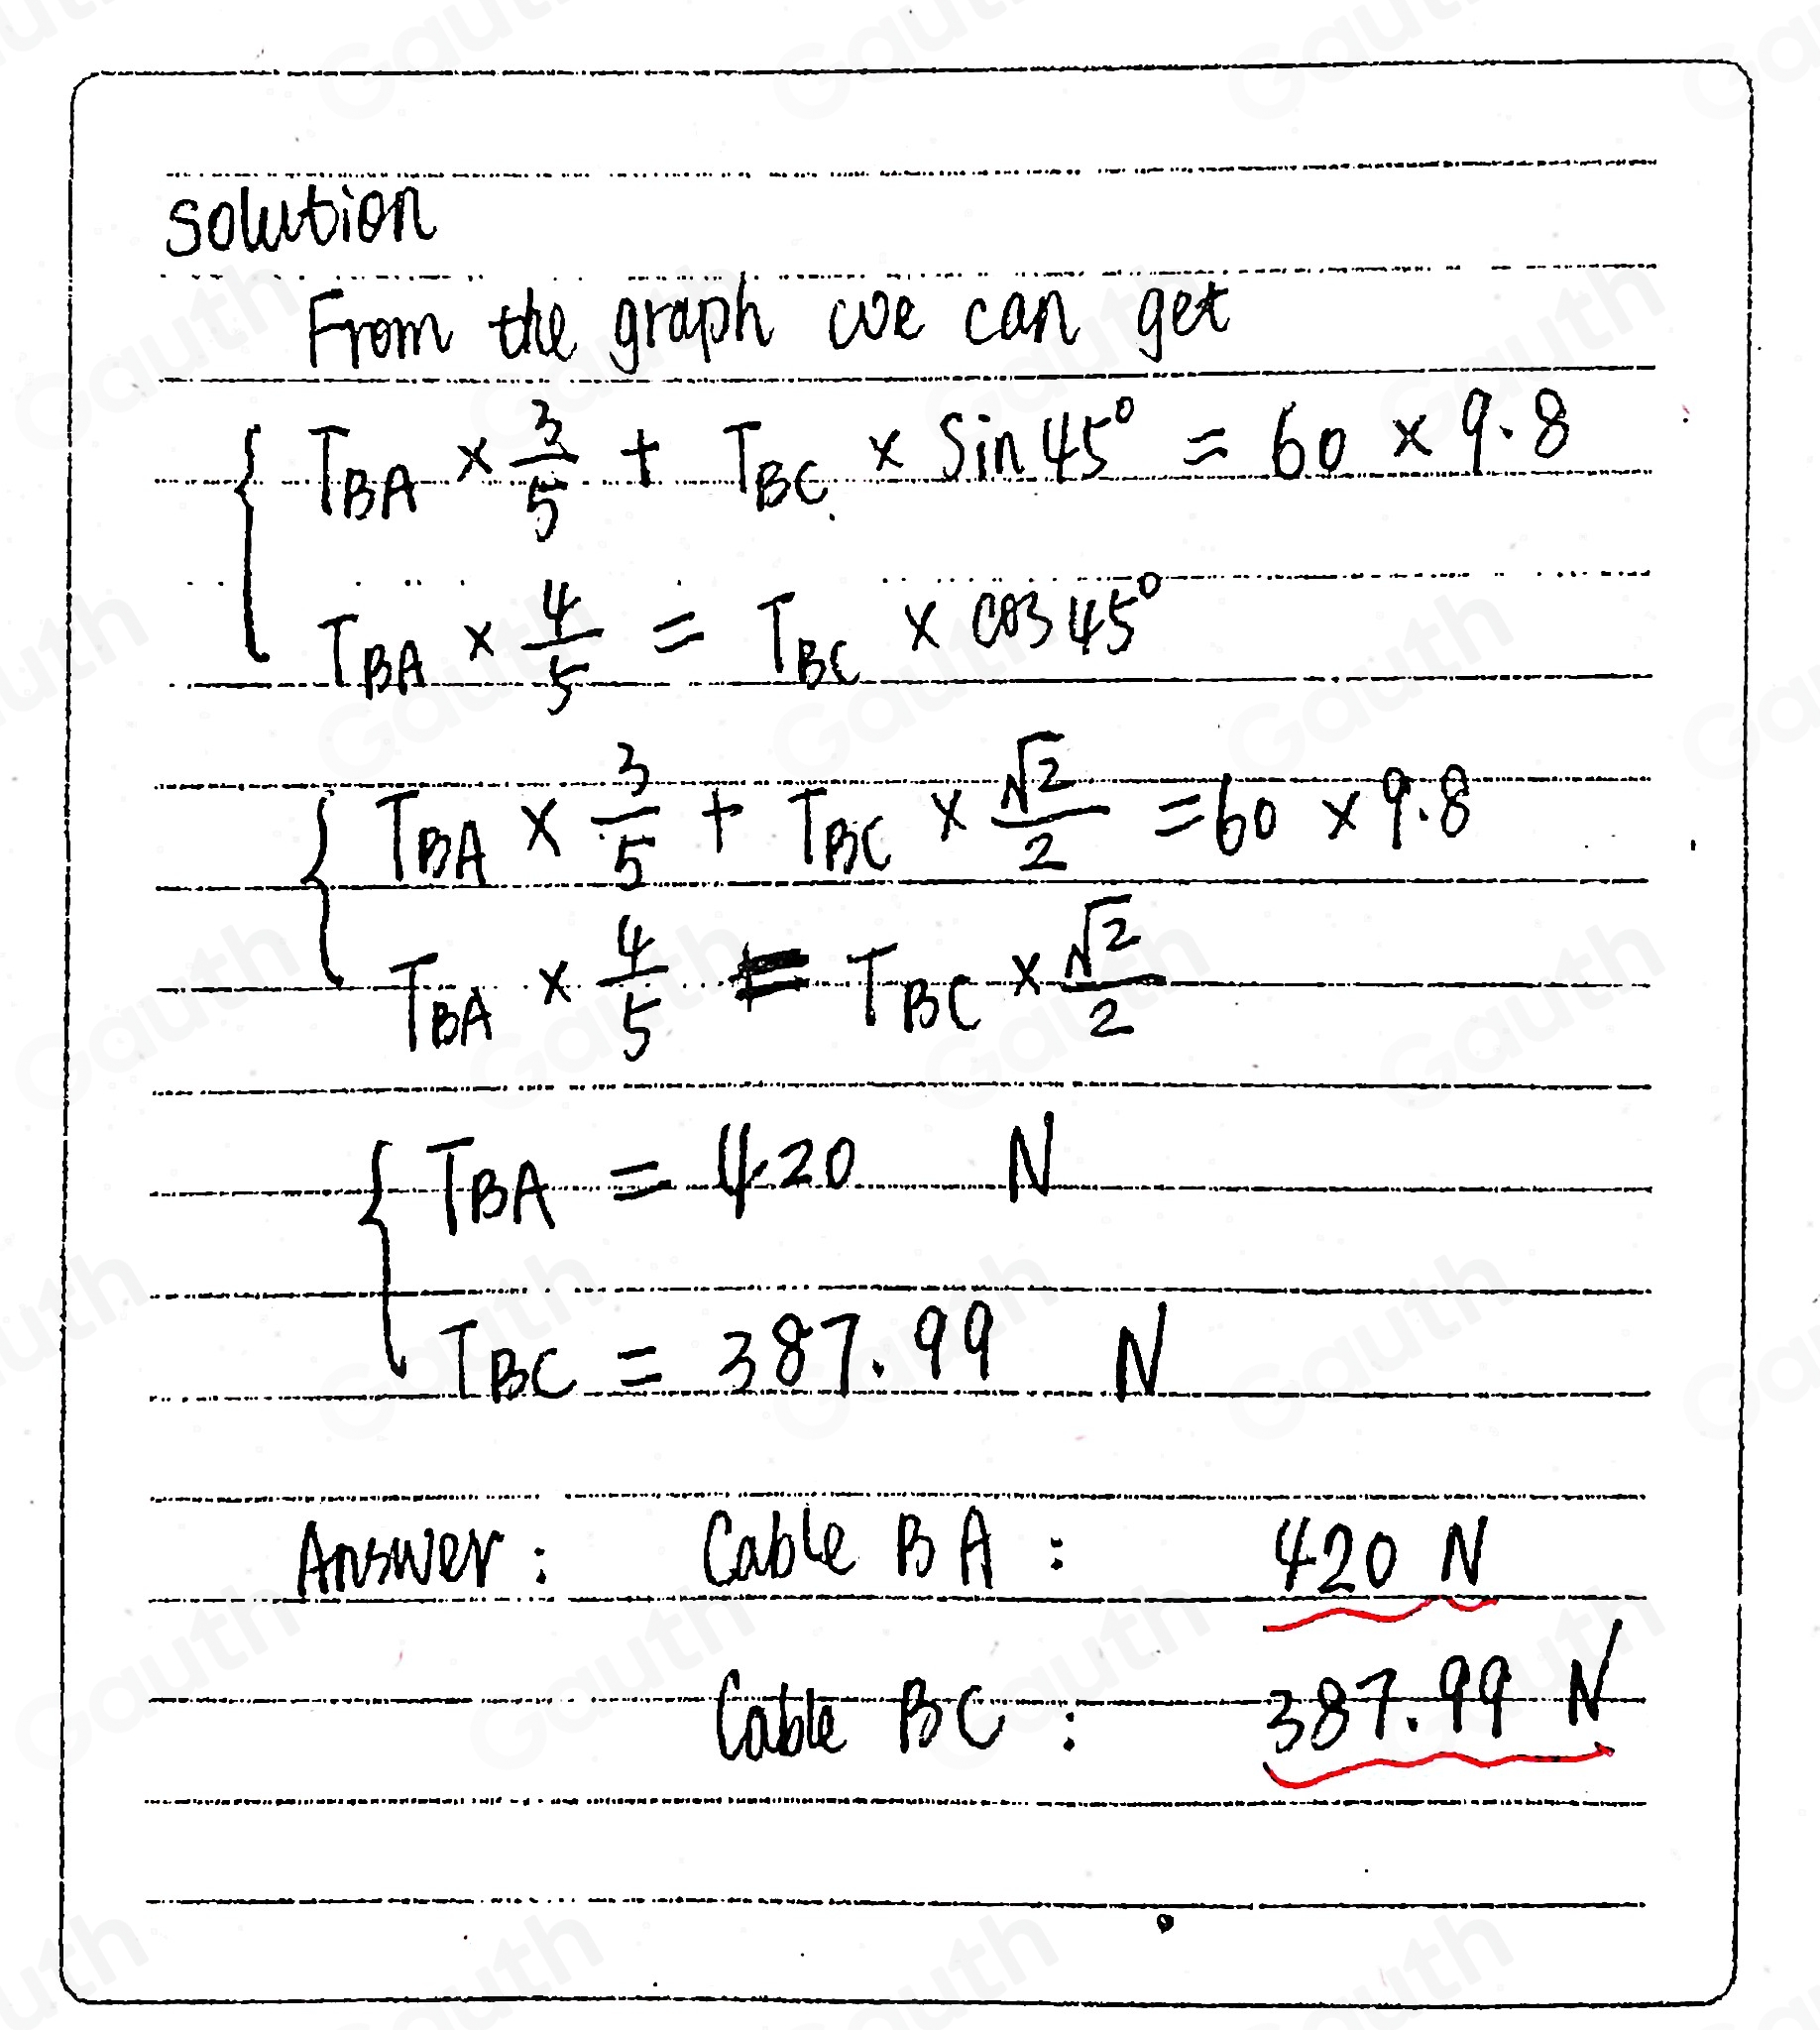 Solution
From the graph we can get
{ T_BA × 3/5 + T_BC × Sin 45° = 60 × 9.8
T_BA × 4/5 = T_BC × cos 45°
{ T_BA × 3/5 + T_BC × √2/2 = 60 × 9.8
T_BA × 4/5 = T_BC × √2/2
{ T_BA = 420 N
T_BC = 387.99 N
Answer: Cable BA: 420 N
Cable BC: 387.99 N